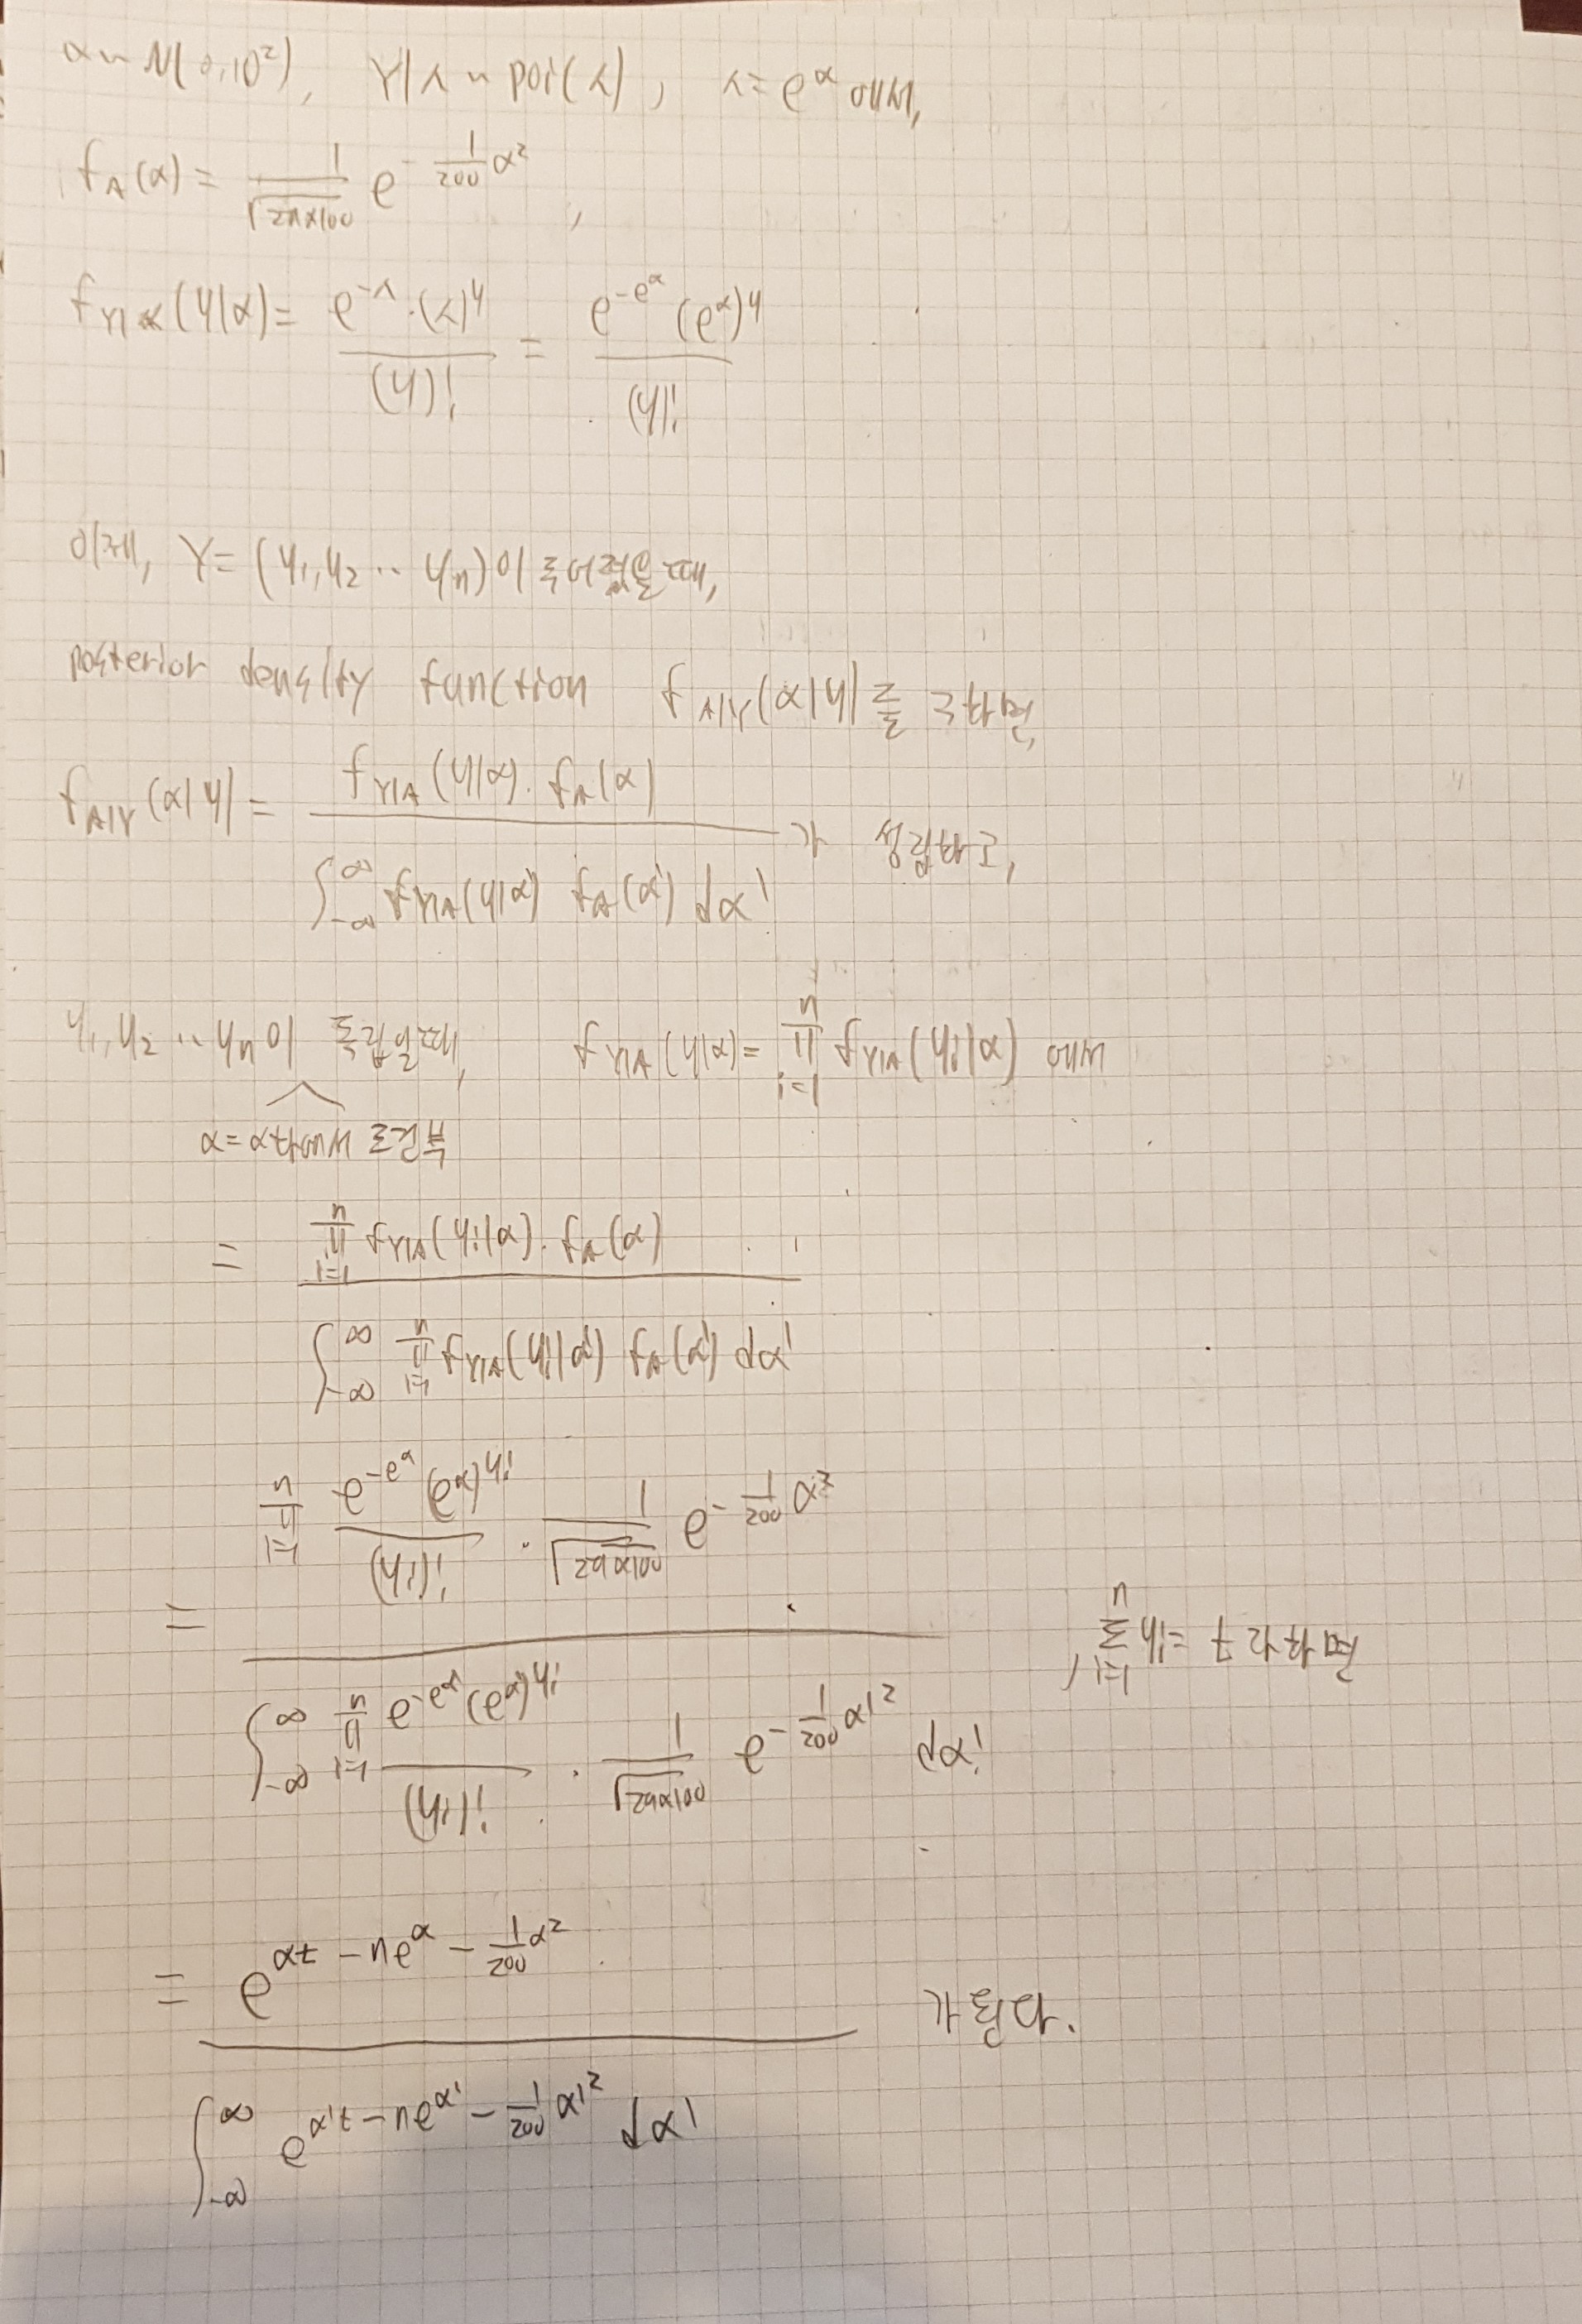 α ~ N(0, 10²), Y|λ ~ poi(λ), λ = e^α 에서,
f_A(α) = 1/√(2π×100) e^(-1/200 α²),
f_Y|α(y|α) = e^(-λ)·(λ)^y / (y)! = e^(-e^α) (e^α)^y / (y)!
이제, Y = (y₁, y₂ ·· yₙ)이 주어졌을때,
posterior density function f_A|Y(α|y)를 구하면,
f_A|Y(α|y) = f_Y|A(y|α)·f_A(α) / ∫_{-∞}^{∞} f_Y|A(y|α') f_A(α') dα' 가 성립하고,
y₁, y₂ ·· yₙ이 독립일때, f_Y|A(y|α) = ∏_{i=1}^{n} f_Y|A(yᵢ|α) 에서
α=α하에서 조건부
= ∏_{i=1}^{n} f_Y|A(yᵢ|α)·f_A(α) / ∫_{-∞}^{∞} ∏_{i=1}^{n} f_Y|A(yᵢ|α') f_A(α') dα'
= ∏_{i=1}^{n} e^(-e^α) (e^α)^(yᵢ) / (yᵢ)! · 1/√(2π×100) e^(-1/200 α²) / ∫_{-∞}^{∞} ∏_{i=1}^{n} e^(-e^α') (e^α')^(yᵢ) / (yᵢ)! · 1/√(2π×100) e^(-1/200 α'²) dα'
, Σ_{i=1}^{n} yᵢ = t 라하면
= e^(αt - ne^α - 1/200 α²) / ∫_{-∞}^{∞} e^(α't - ne^α' - 1/200 α'²) dα' 가 된다.